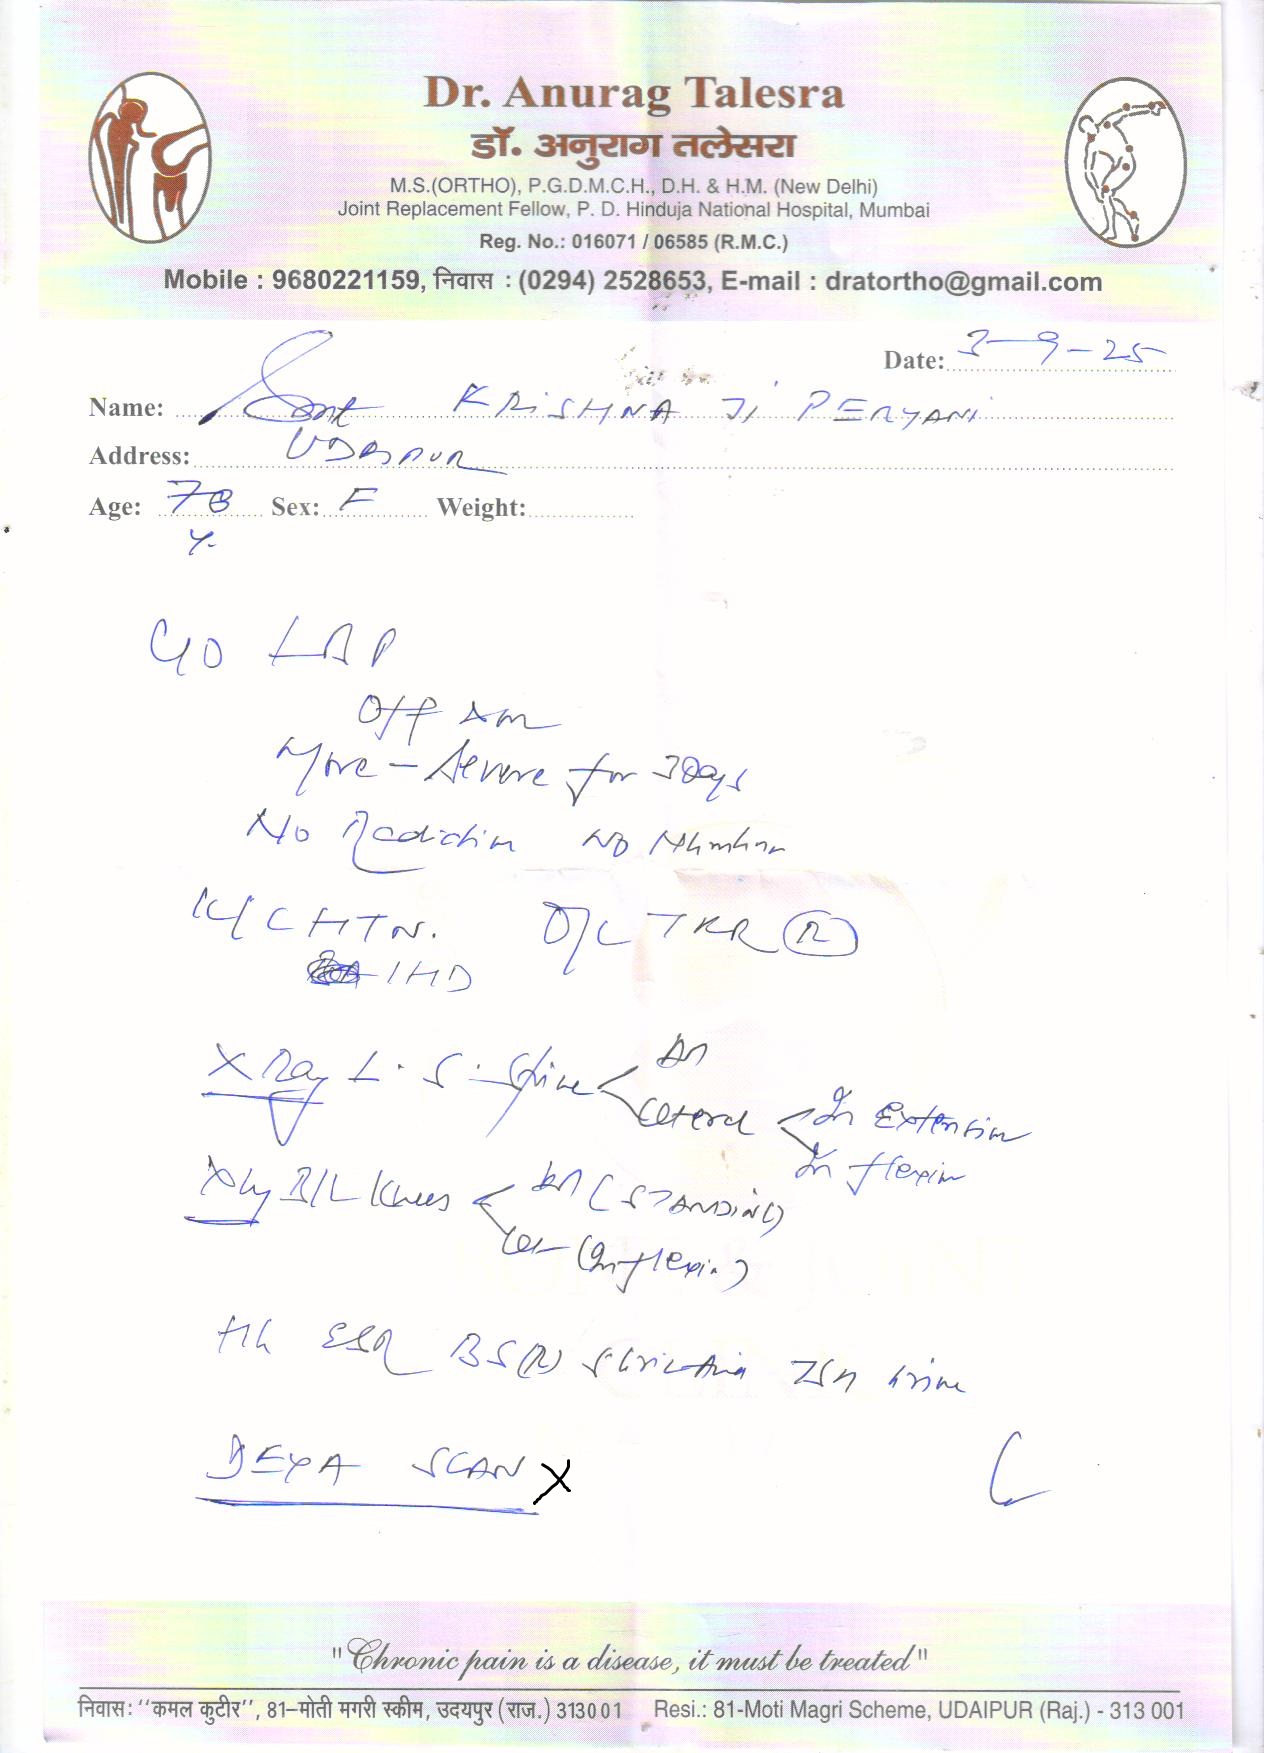 Dr. Anurag Talesra
डॉ. अनुराग तलेसरा
M.S.(ORTHO), P.G.D.M.C.H., D.H. & H.M. (New Delhi)
Joint Replacement Fellow, P. D. Hinduja National Hospital, Mumbai
Reg. No.: 016071 / 06585 (R.M.C.)
Mobile : 9680221159, निवास : (0294) 2528653, E-mail : dratortho@gmail.com
Date: 3-9-25
Name: Smt KRISHNA JI PERYANI
Address: UDAIPUR
Age: 78 Sex: F Weight:
Y.
C/O LBP
Off & on
More - severe for 3 Days
No Radiation No Numbness
K/C HTN. O/C TKR (R)
IHD
X Ray L. S. Spine AP
Lateral In Extension
In flexion
X Ray B/L Knees AP (STANDING)
Lat (In flexion)
Hb ESR BS(R) S. Creatinine TSH Urine
DEXA SCAN X
"Chronic pain is a disease, it must be treated"
निवास: ‘‘कमल कुटीर’’, 81–मोती मगरी स्कीम, उदयपुर (राज.) 313001 Resi.: 81-Moti Magri Scheme, UDAIPUR (Raj.) - 313 001